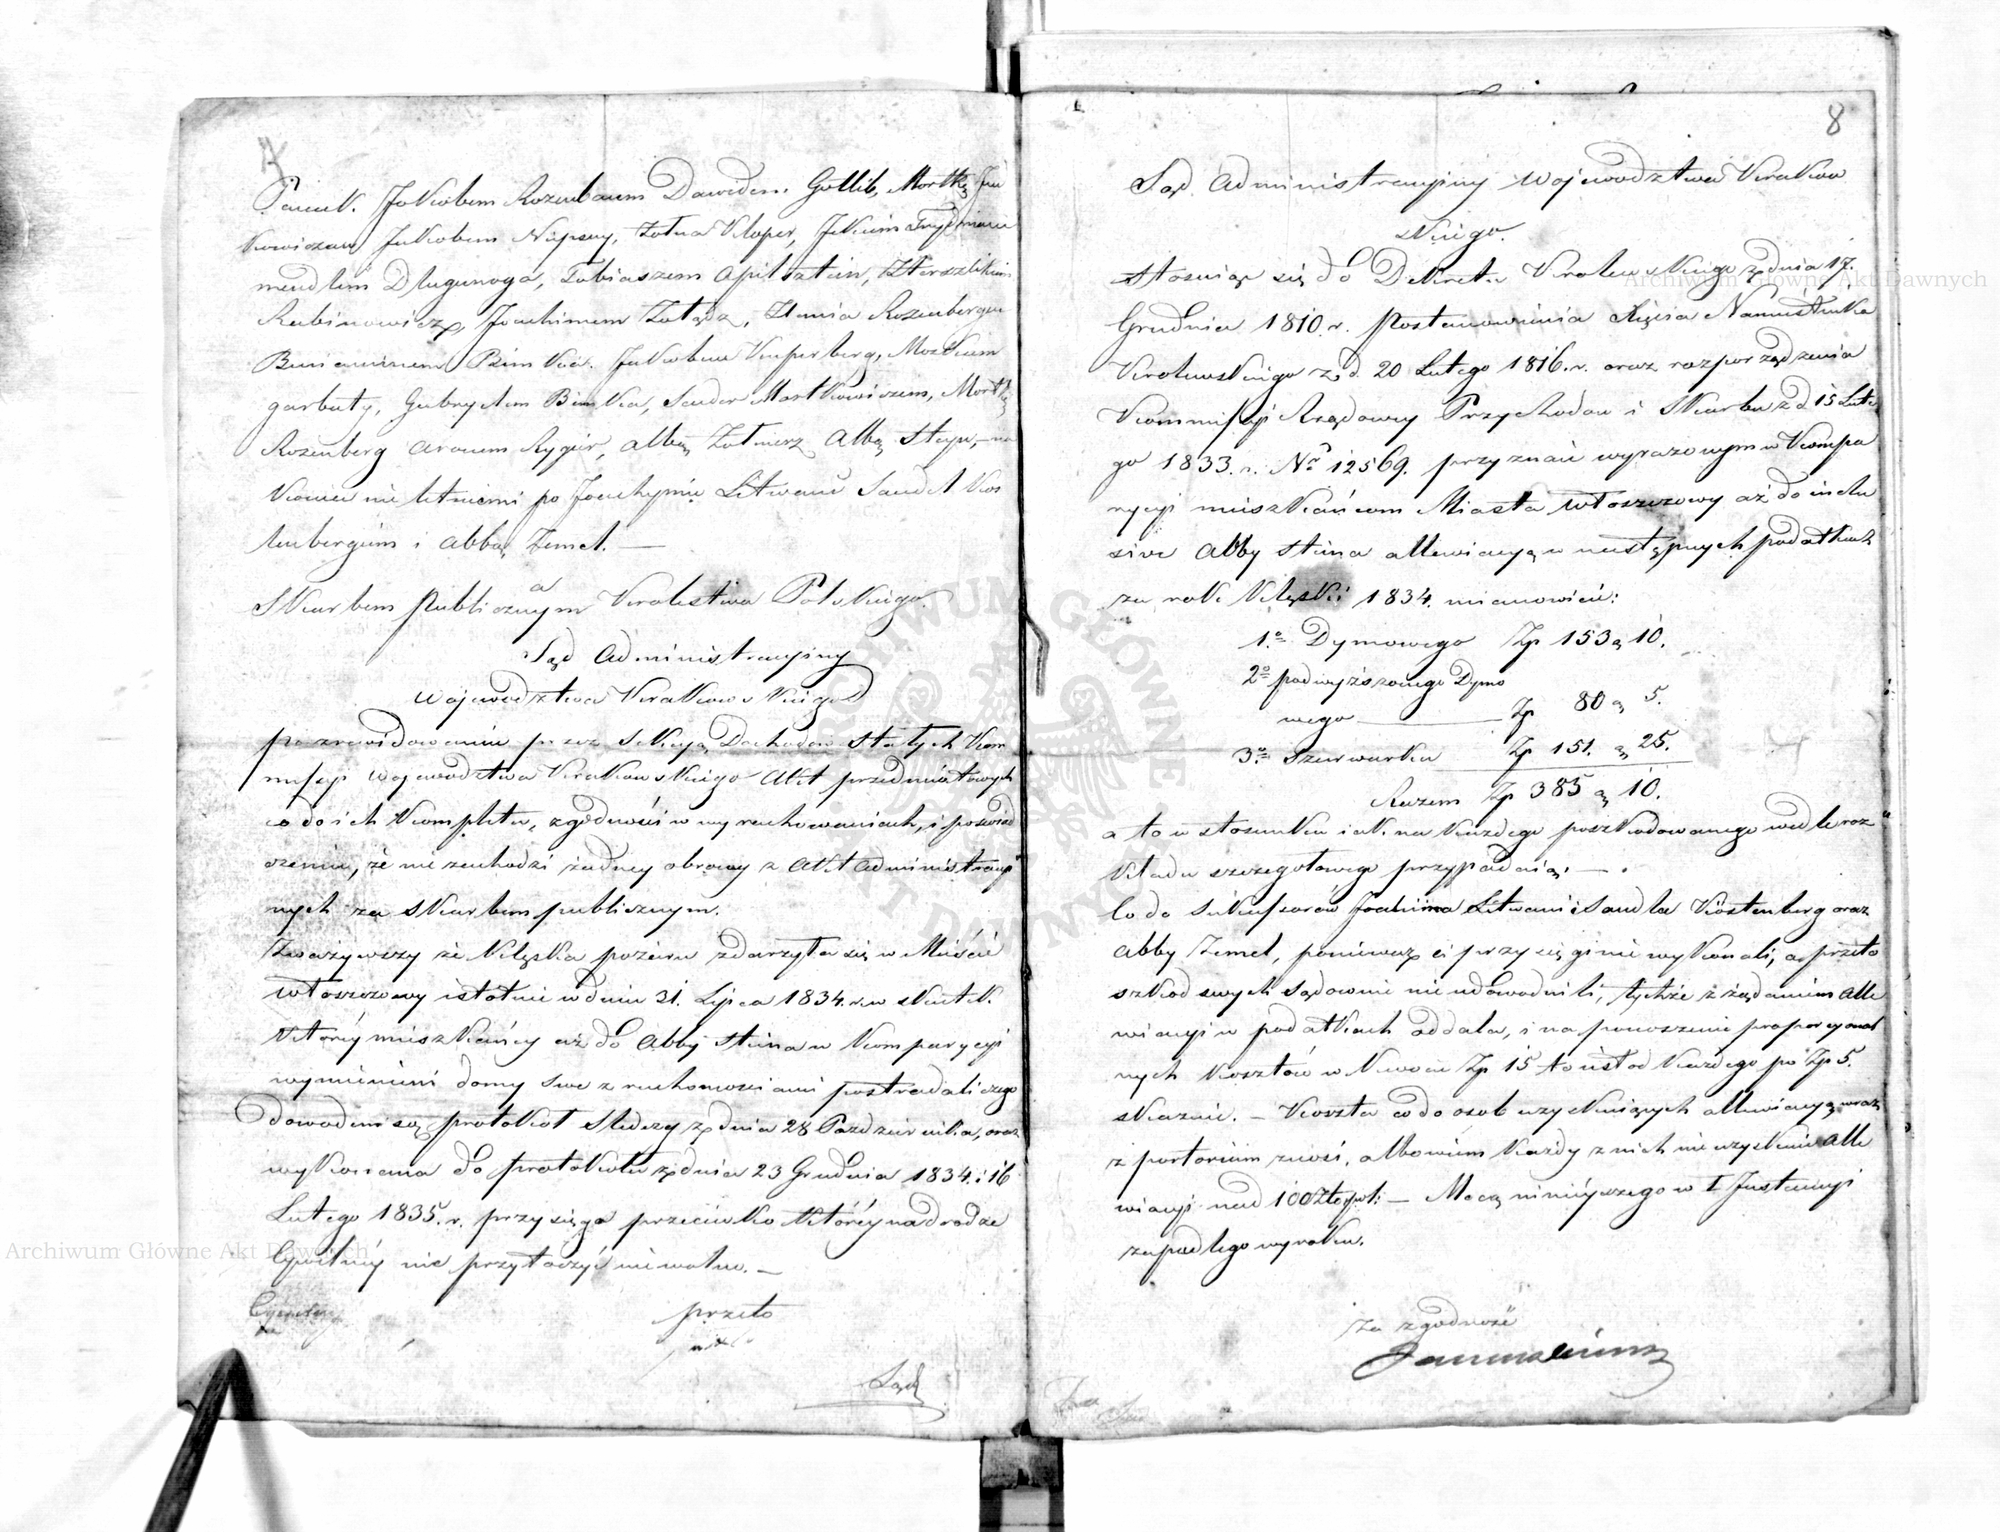 Pacuk. Jakobem Rozenbaum Dawidem Gotlib, Mortką Jan
kowiczem Jakobem Niepsuy, Kloper,
mendlem Długanoga, Tobiaszem Apilsztein, Herszlikiem
Rubinowicz, Joachimem Rozenbergem
Beniaminem Bimka. Jakobem Kuperberg, Moszkiem
garbaty, Gabryelem Bimka, Sender Mortkowiczem, Mortką
Rozenberg Aronem Rygier, Abbą Żołnierz Abbą Steyn, — na
koniec nieletniemi po Joachymie Litwanie Sandel Kos
tenbergiem i Abbą Zemel. —
a
Skarbem Publicznym Królestwa Polskiego.
Sąd Administracyiny
Województwa Krakowskiego
po zrewidowaniu przez Sekcyą Dochodów Stałych Kom
missyi Województwa Krakowskiego Akt przedmiotowych
co do ich kompletu, zgodności w wyrachowaniach, i poświad
czeniu, że nie zachodzi żadney obrony z Akt Administracyi
nych za Skarbem publicznym.
Zważywszy że klęska pożaru zdarzyła się w Mieście
Włoszczowy istotnie w dniu 31. Lipca 1834. r. w skutek
którey mieszkańcy aż do Abby Steina w komparycyi
wymienieni domy swe z ruchomosciami postradali czego
dowodem są protokół Śledczy z dnia 28 Października, oraz
wykonana do protokółu z dnia 23 Grudnia 1834. i 16
Lutego 1835. r. przysięga przeciwko którey na drodze
Cywilney nic przytoczyć nie wolno. —
przeto
Sąd
8
Sąd Administracyiny Województwa Krakow
skiego.
Stosuiąc się do Dekretu Królewskiego z dnia 17.
Grudnia 1810. r. Postanowienia Xięcia Namiestnika
Królewskiego z d. 20 Lutego 1816. r. oraz rozporządzenia
Kommissyi Rządowey Przychodów i Skarbu z d. 15 Lute
go 1833. r. Nr 12569. przyznaie wyrazonym w Kompa
rycyi mieszkańcom Miasta Włoszczowy aż do inclu
sive Abby Steina allewiacyą w następnych podatkach
za rok klęski 1834. mianowicie:
1.o Dymowego Zp 153 g 10.
2o podwyższonego Dymo
wego — Zp 80 g 5.
3.o Szarwarku Zp 151. g 25.
Razem Zp 385 g 10.
a to w stosunku iak na każdego poszkodowanego wedle roz
kładu szczegołowego przypadnie. —
Co do Sukcessorów Joachima Litwan i Sandla Kostenberg oraz
Abby Zemel, ponieważ ci przysięgi nie wykonali, a przeto
szkod swych sądownie nie udowodnili, tychże z żądaniem alle
wiacyi w podatkach oddala, i na ponoszenie proporcyonal
nych kosztów w kwocie Zp 15 to iest od każdego po Zp 5.
skazuie. — Koszta co do osob uzyskuiących allewiacyą wraz
z portorium znosi, albowiem każdy z nich nie uzyskuie alle
wiacyi nad 100 Złotpol: — Mocą ninieyszego w I Instancyi
zapadłego wyroku.
za zgodność